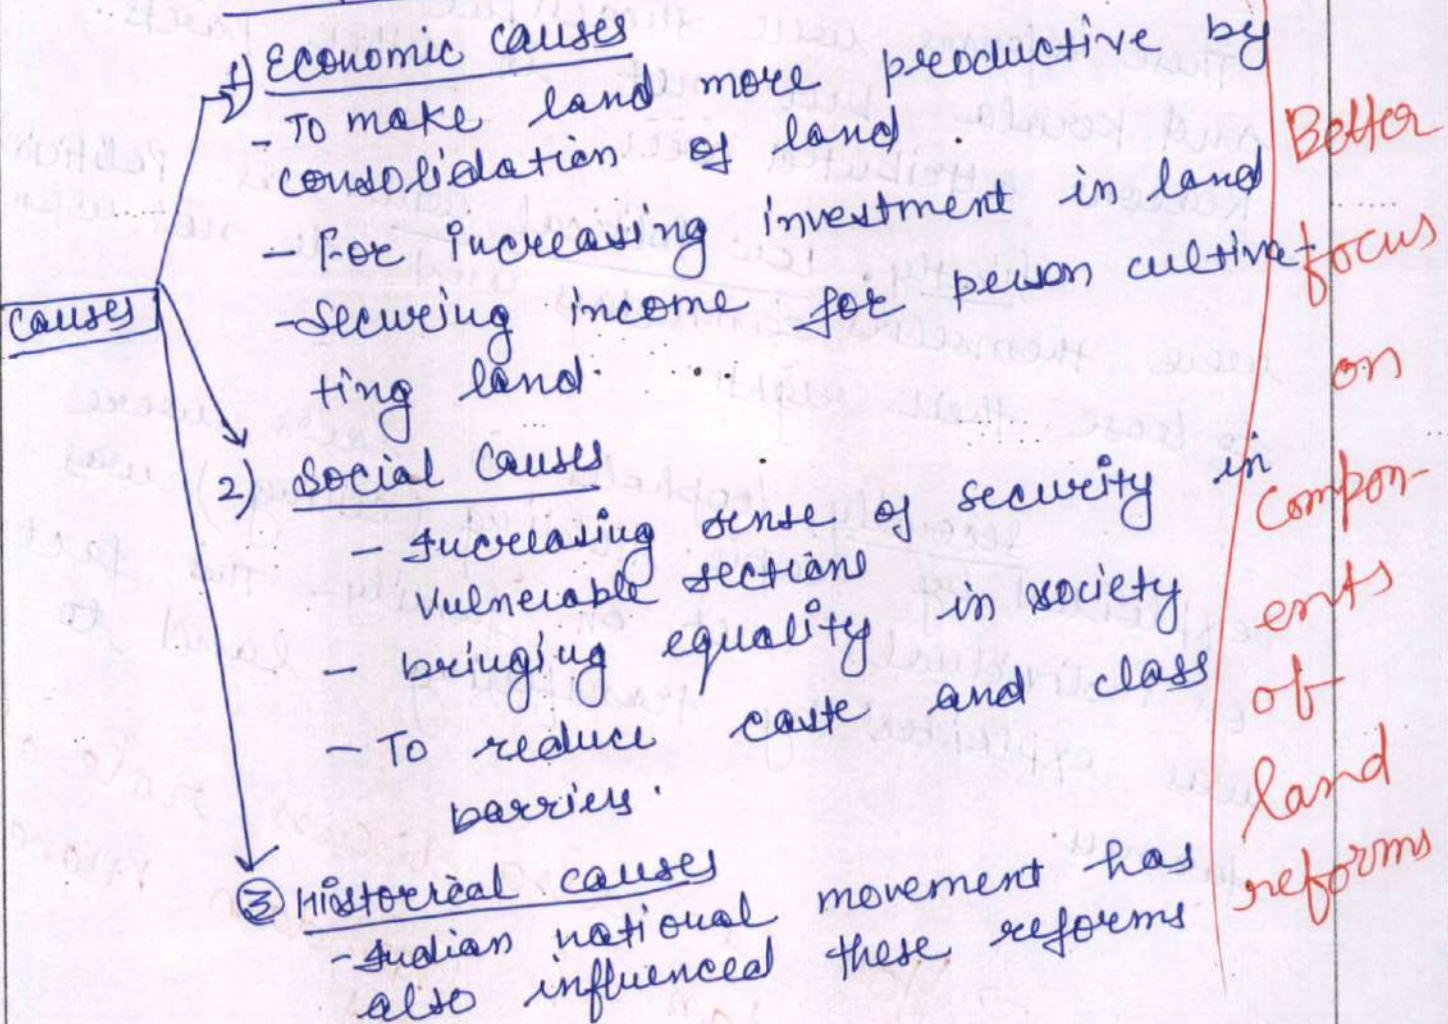 1) Economic causes
- To make land more productive by
consolidation of land.
- For increasing investment in land
- Securing income for person cultiva-
ting land.
causes
2) Social causes
- Increasing sense of security in
vulnerable sections
- bringing equality in society
- To reduce caste and class
barriers.
3 Historical causes
- Indian national movement has
also influenced these reforms
Better
focus
on
compon-
ents
of
land
reforms